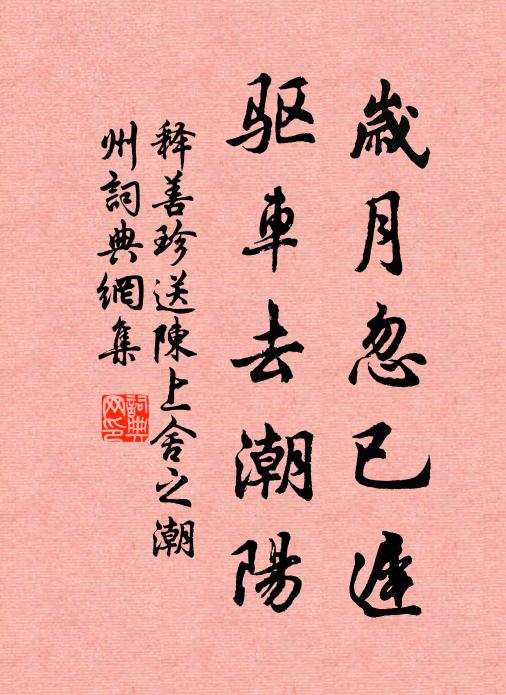 歲月忽已遲
驱車去潮陽
释善珍送陳上舍之潮
州詞典網集
詞典网印